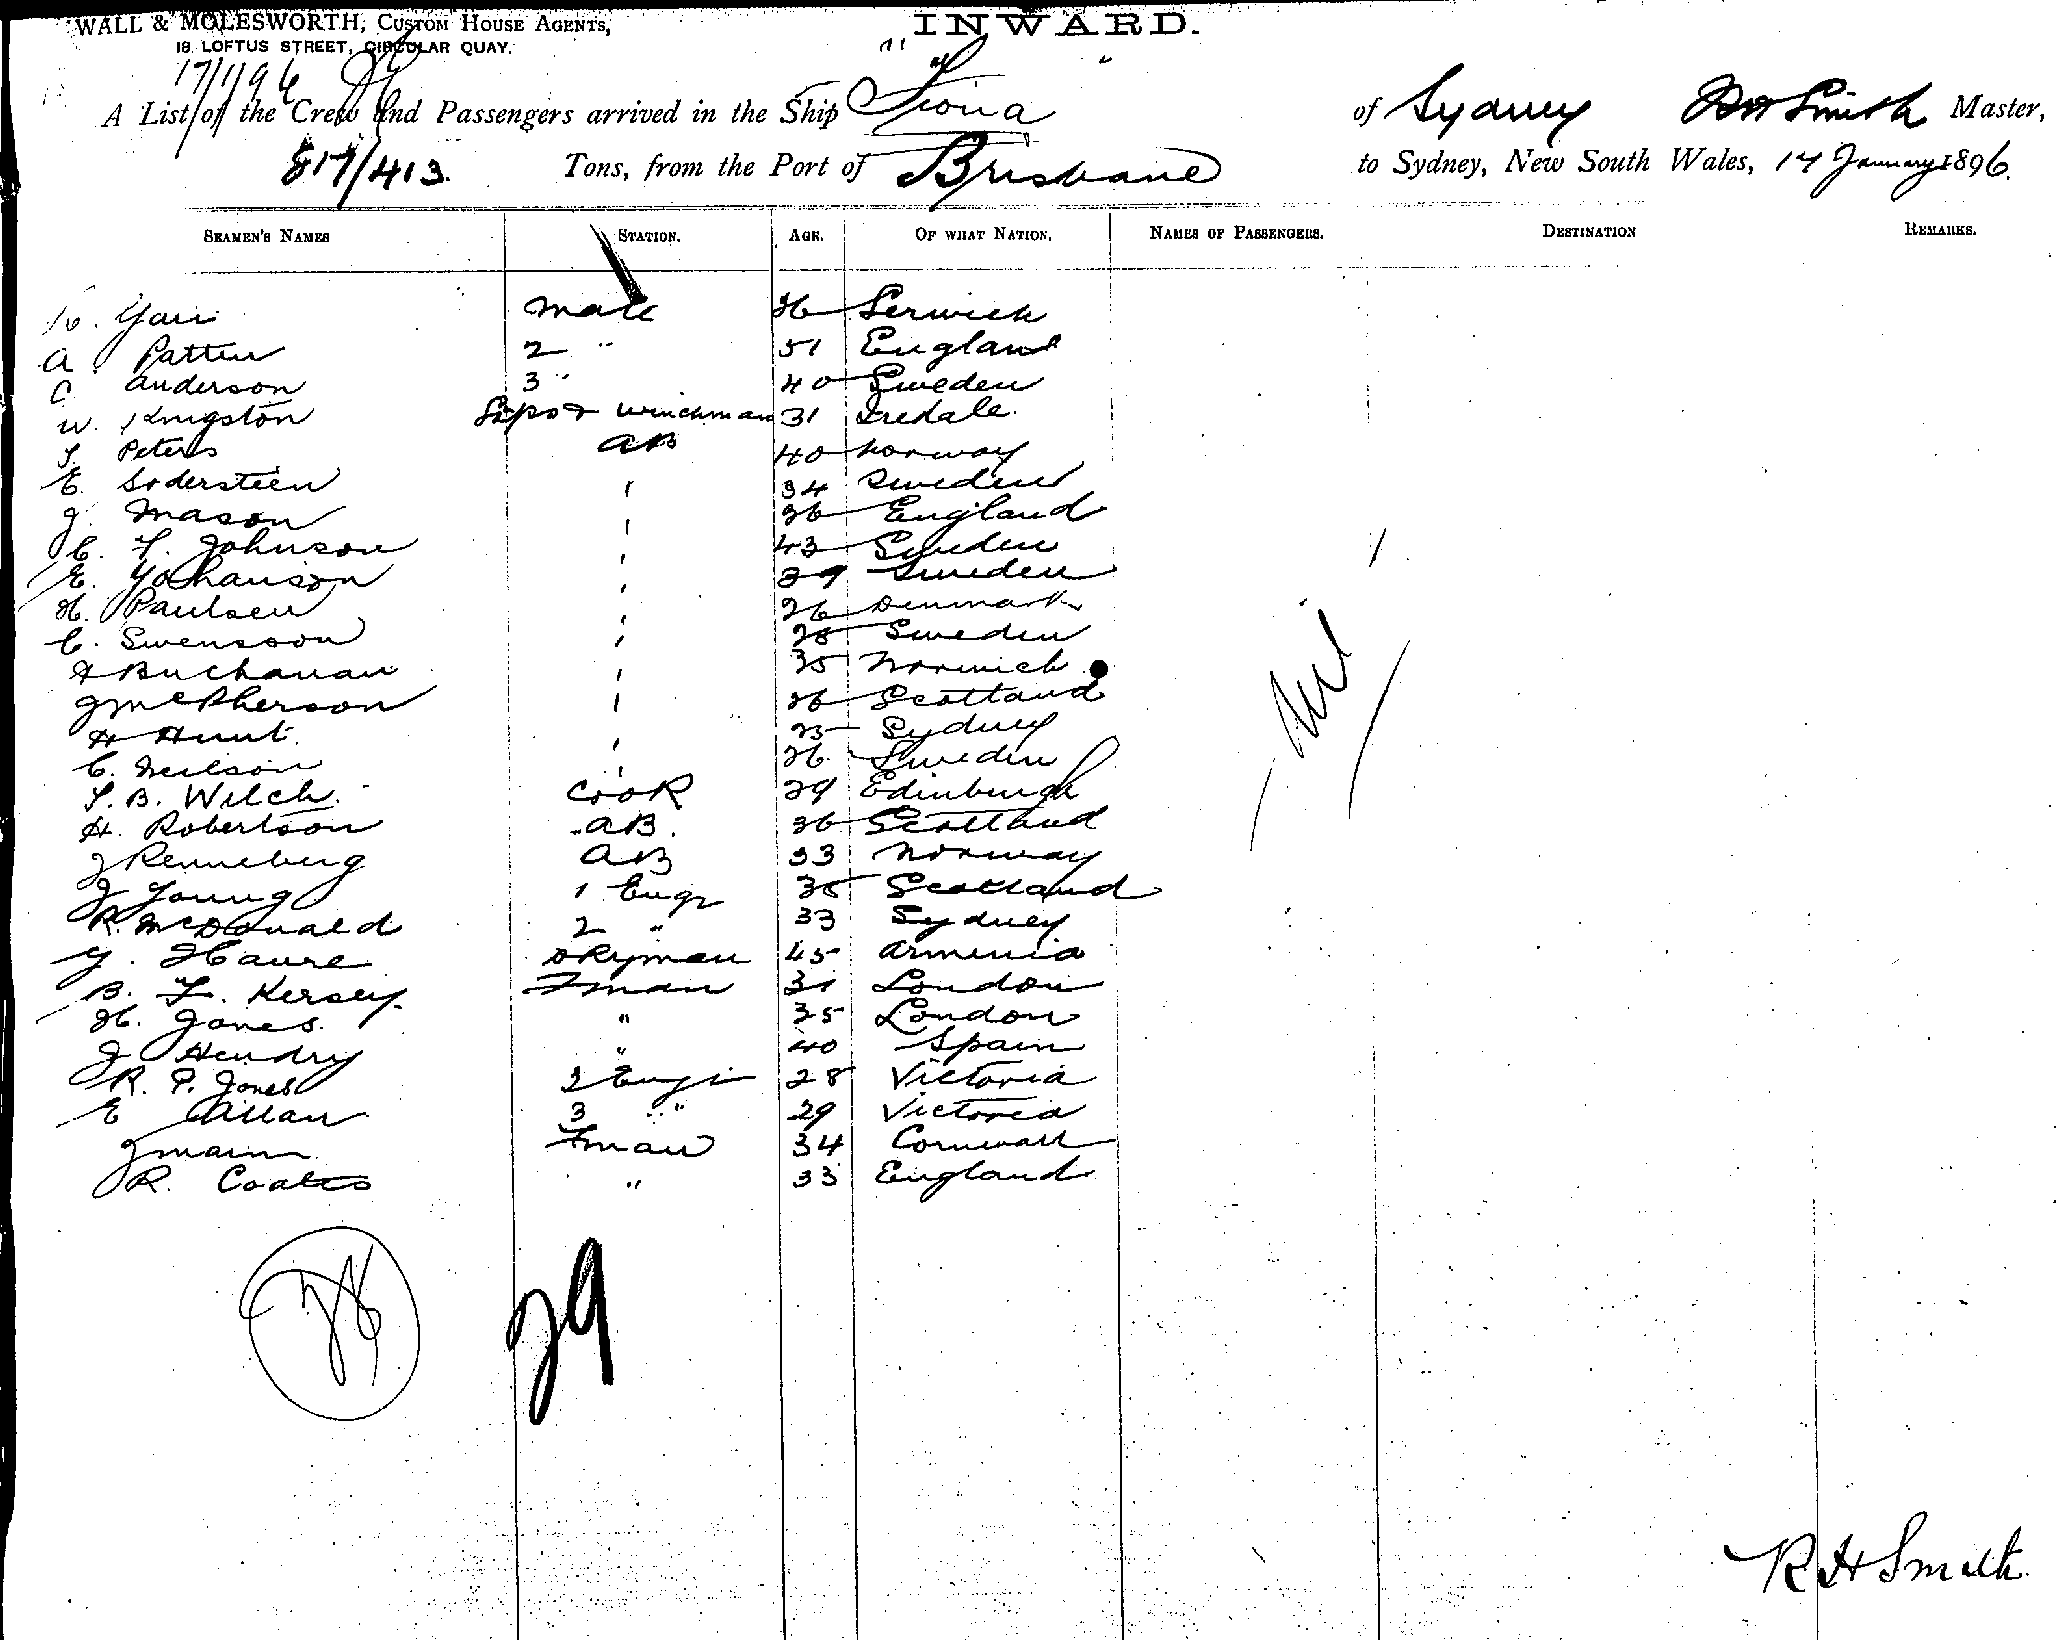 WALL & MOLESWORTH, CUSTOM HOUSE AGENTS,
18 LOFTUS STREET, CIRCULAR QUAY.
INWARD.
17/1/96
A List of the Crew and Passengers arrived in the Ship "Fiona" of Sydney R H Smith Master,
817/413 Tons, from the Port of Brisbane to Sydney, New South Wales, 17 January 1896.
SEAMEN'S NAMES STATION. AGE. OF WHAT NATION. NAMES OF PASSENGERS. DESTINATION REMARKS.
Mate 36 Lerwick
A Patten 2 " 51 England
C Anderson 3 " 40 Sweden
W. Kingston Winchman 31
Peters AB 40 Norway
E. Dodersteen ' 34 Sweden
J. Mason ' 26 England
C. F. Johnson ' 43 Sweden
E. Yohanson ' 39 Sweden
H. Paulsen ' 26 Denmark
C. Swensson ' 28 Sweden
Buchanan ' 35 Norwich
J McPherson ' 26 Scotland
H Hunt ' 23 Sydney
C. Neilson ' 26 Sweden
T. B. Welch. Cook 29 Edinburgh
H. Robertson AB. 26 Scotland
J Renneberg AB 33 Norway
J Young 1 Engr 35 Scotland
R. McDonald 2 " 33 Sydney
G. Haure Dkyman 45 Armenia
B. F. Kersey Fman 31 London
H. Jones. " 35 London
J Hendry " 40 Spain
R. P. Jones 2 Engr 28 Victoria
E Allan 3 " 29 Victoria
J Main Fman 34 Cornwall
R. Coates " 33 England
Nil
28
29
R H Smith